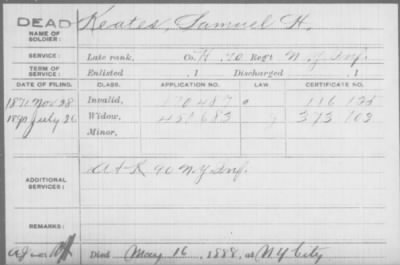 DEAD
NAME OF SOLDIER: Keates, Samuel H.
SERVICE: Late rank, Co. H 70 Regt N.Y. Inf.
TERM OF SERVICE: Enlisted , 1 Discharged , 1
DATE OF FILING. CLASS. APPLICATION NO. LAW. CERTIFICATE NO.
1871 Nov 28 Invalid, 170487 116135
1890 July 26 Widow, 481683 373102
Minor,
ADDITIONAL SERVICES: A + K 90 N.Y. Inf.
REMARKS:
Died May 16, 1888, at N.Y. City